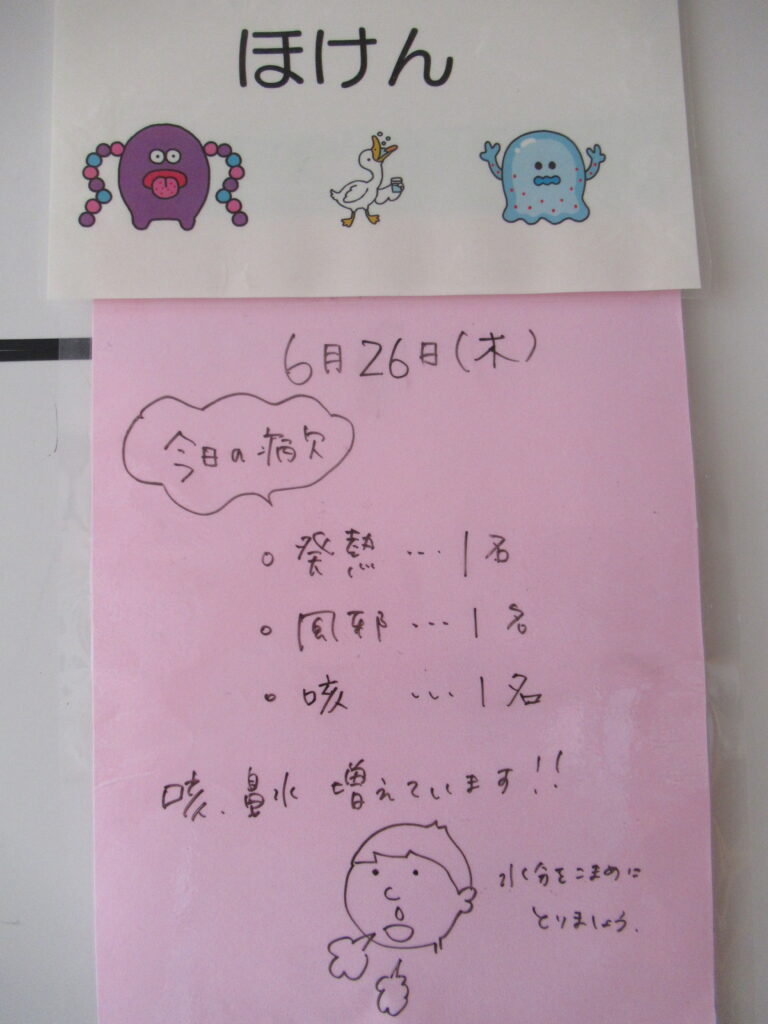 ほけん
6月26日(木)
今日の病欠
○ 発熱 … 1名
○ 風邪 … 1名
○ 咳 … 1名
咳、鼻水 増えています!!
水分をこまめに
とりましょう。